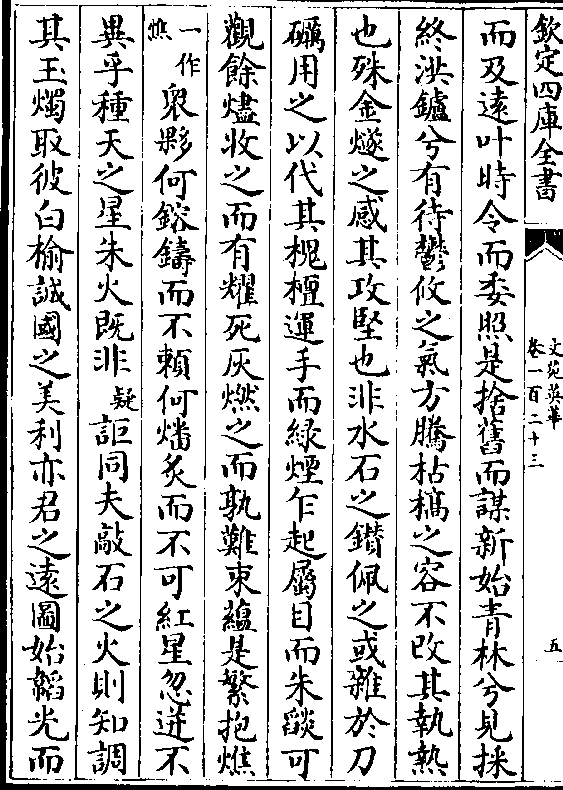 欽定四庫全書
文苑英華
卷一百二十三
五
而及遠叶時令而委照是捨舊而謀新始青林兮見採
終洪鑪兮有待鬱攸之氣方騰枯槁之容不改其執熱
也殊金燧之感其攻堅也非水石之鑚佩之或雜於刀
礪用之以代其槐檀運手而緑煙乍起屬目而朱燄可
觀餘燼收之而有耀死灰燃之而孰難束蘊是繁抱燋
一作㷄衆夥何鎔鑄而不頼何燔炙而不可紅星忽迸不
異乎種天之星朱火既非疑詎同夫敲石之火則知調
其玉燭取彼白榆誠國之美利亦君之遠圖始韜光而